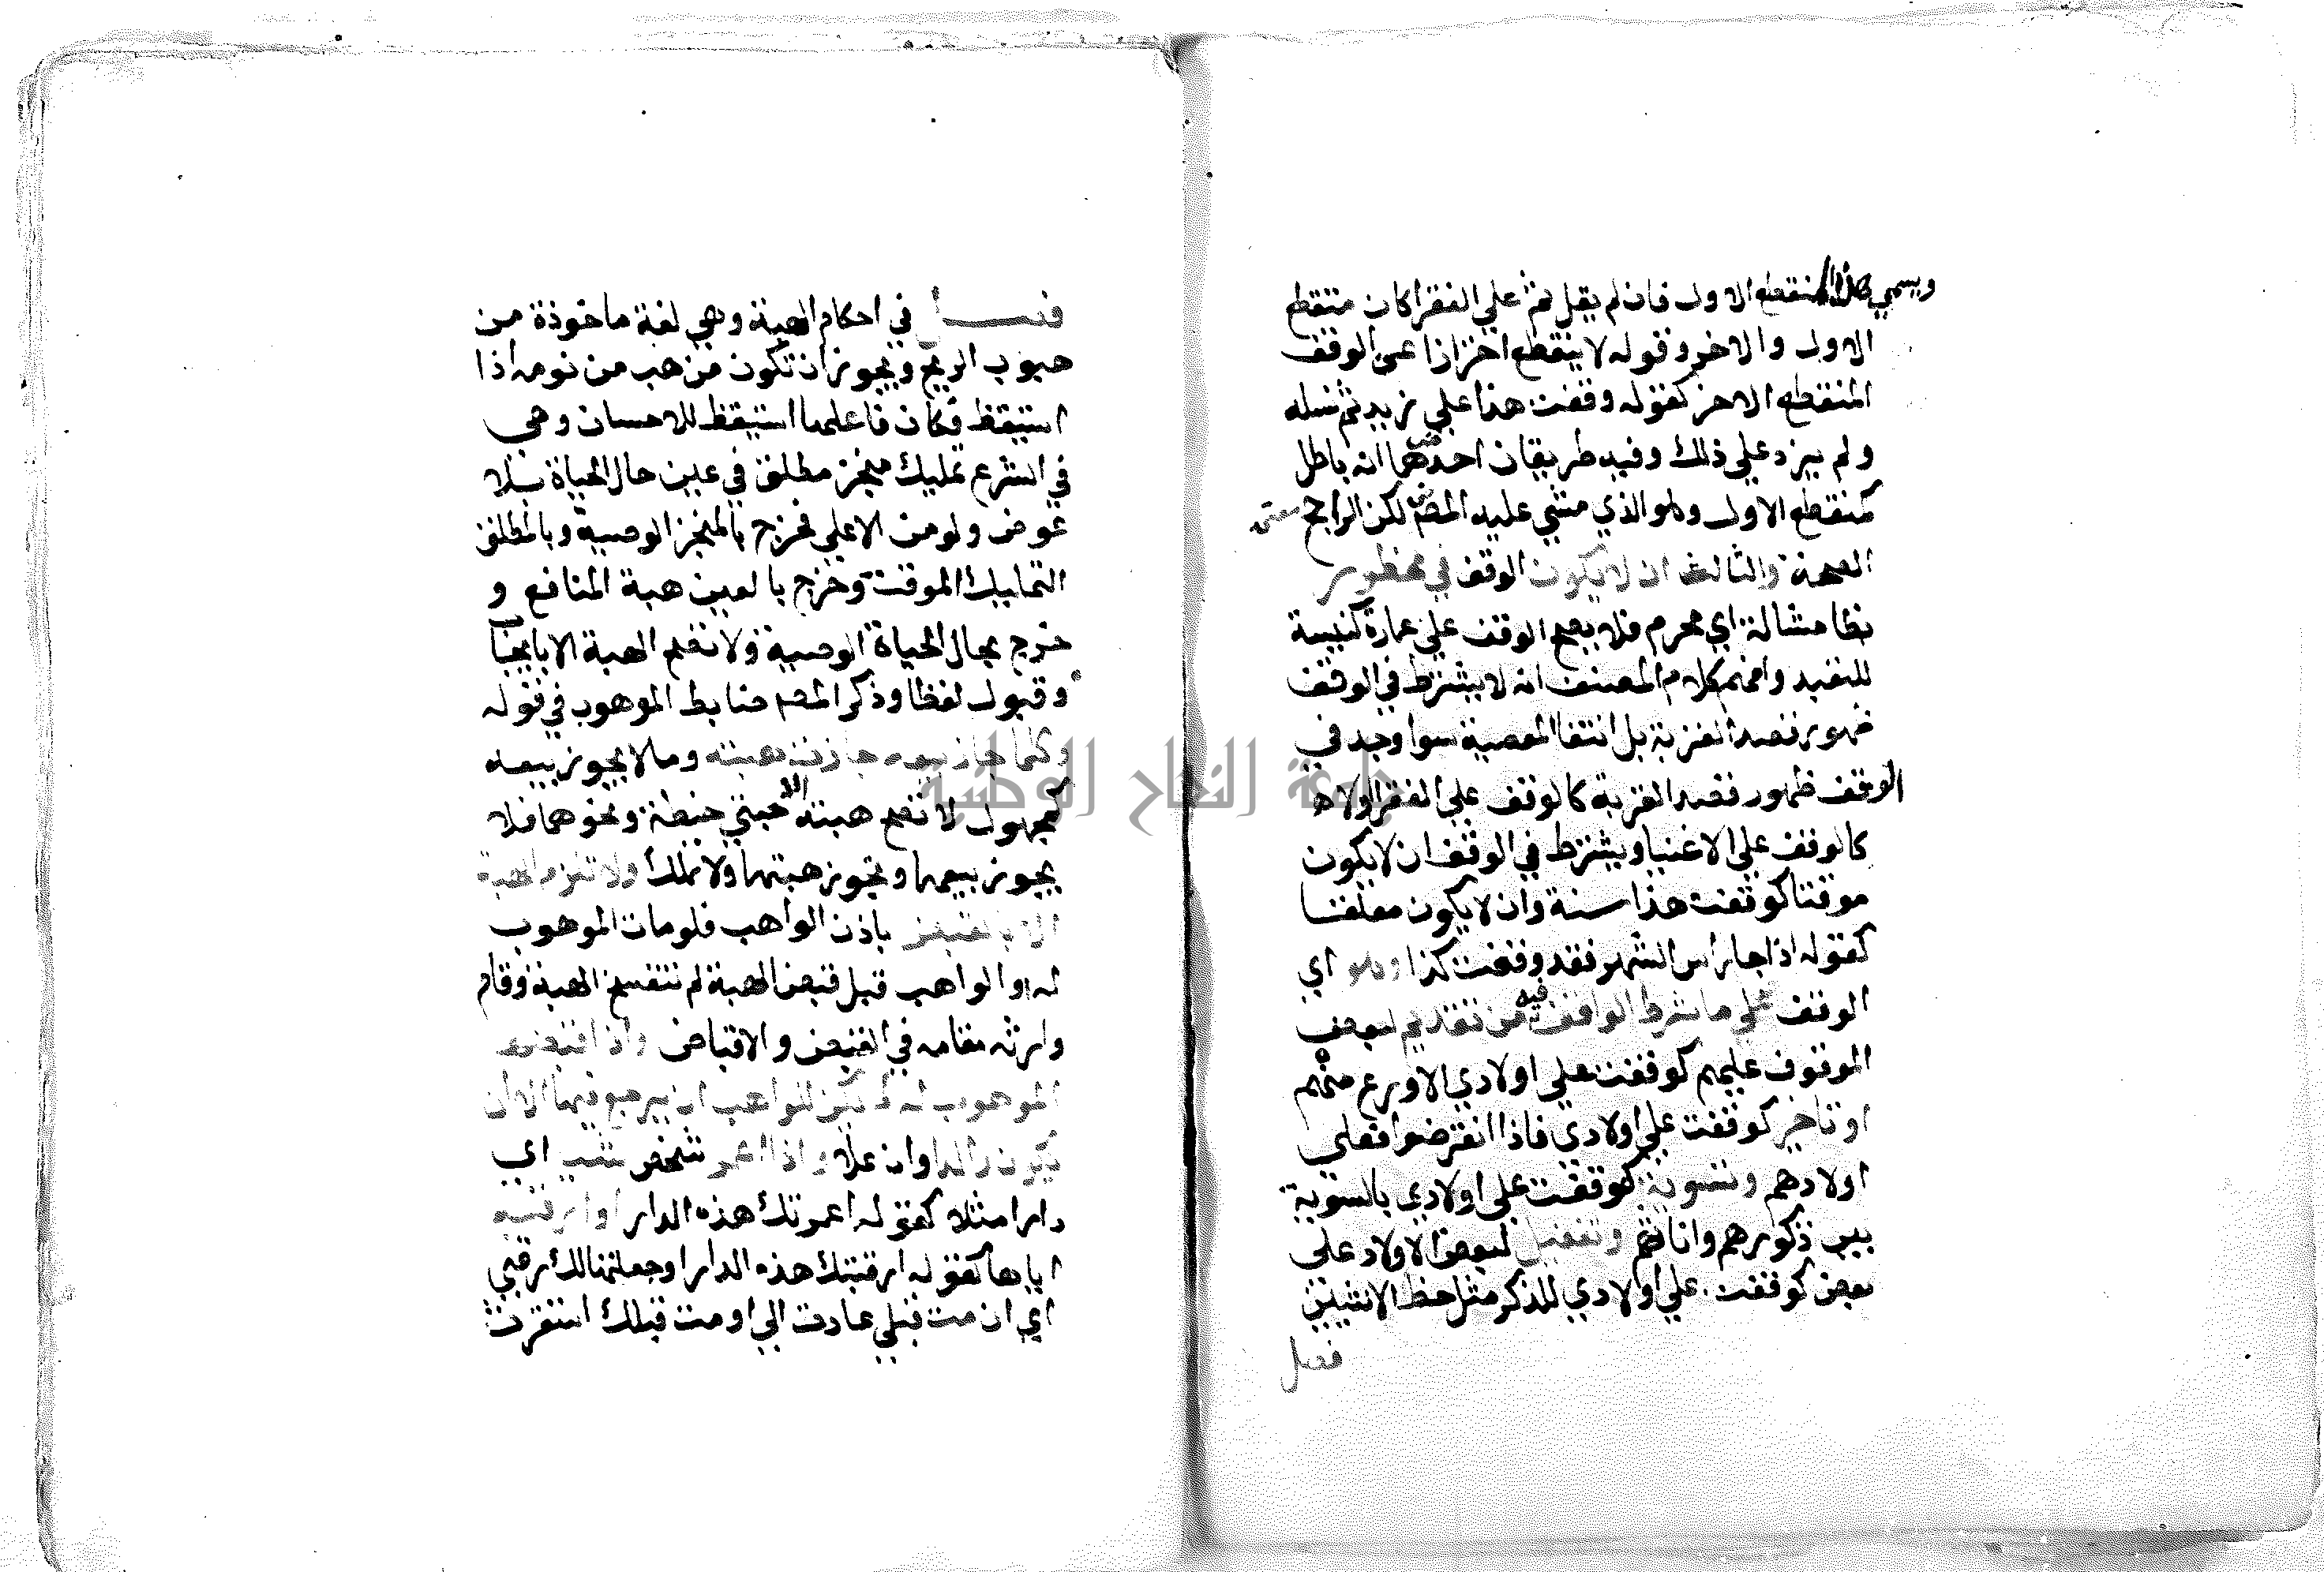 ويسمي هذا المنقطع الاول فان لم يقل ثم علي الفقرا كان منقطع
الاول والاخر وقوله لا ينقطع احترازا عن الوقف
المنقطع الاخر كقوله وقفت هذا علي زيد ثم نسله
ولم يزد علي ذلك وفيه طريقان احدهما انه باطل
كمنقطع الاول وهو الذي مشي عليه المصـ لكن الراجح
الصحة والثالث ان لا يكون الوقف في محظور
بظا مشالة اي محرم فلا يصح الوقف علي عمارة كنيسة
للتعبد وافهم كلام المصنف انه لا يشترط في الوقف
ظهور قصد القربة بل انتفا المعصية سوا وجد في
الوقف ظهور قصد القربة كالوقف علي الفقرا ولا
كالوقف علي الاغنيا ويشترط في الوقف ان لا يكون
موقتا كوقفت هذا سنة وان لا يكون معلقا
كقوله اذا جا راس الشهر فقد وقفت كذا وهو اي
الوقف علي ما شرط الواقف فيه من تقديم لبعض
الموقوف عليهم كوقفت علي اولادي الاورع منهم
او تاخير كوقفت علي اولادي فاذا انقرضوا فعلي
اولادهم وتسوية كوقفت علي اولادي بالسوية
بين ذكورهم واناثهم وتفضيل لبعض الاولاد علي
بعض كوقفت علي اولادي للذكر مثل حظ الانثيين
فصل
فصل في احكام الهبة وهي لغة ماخوذة من
هبوب الريح ويجوز ان تكون من هب من نومه اذا
استيقظ فكان فاعلها استيقظ للاحسان وهي
في الشرع تمليك منجز مطلق في عين حال الحياة بلا
عوض ولو من الاعلي فخرج بالمنجز الوصية وبالمطلق
التمليك الموقت وخرج بالعين هبة المنافع و
خرج بحال الحياة الوصية ولا تصح الهبة الا بايجاب
وقبول لفظا وذكر المصـ ضابط الموهوب في قوله
وكلما جاز بيعه جازت هبته وما لا يجوز بيعه
كمجهول لا تصح هبته الا حبتي حنطة ونحوهما فلا
يجوز بيعها وتجوز هبتها ولا تملك ولا تلزم الهبة
الا بالقبض باذن الواهب فلو مات الموهوب
له او الواهب قبل قبض الهبة لم تنفسخ الهبة وقام
وارثه مقامه في القبض والاقباض واذا اقبضها
الموهوب له لم يكن للواهب ان يرجع فيها الا ان
يكون والدا وان علا واذا اعمر شخص شييا اي
دارا مثلا كقوله اعمرتك هذه الدار او ارقبه
اياها كقوله ارقبتك هذه الدار او جعلتها لك رقبي
اي ان مت قبلي عادت الي او مت قبلك استقرت
جامعة النجاح الوطنية